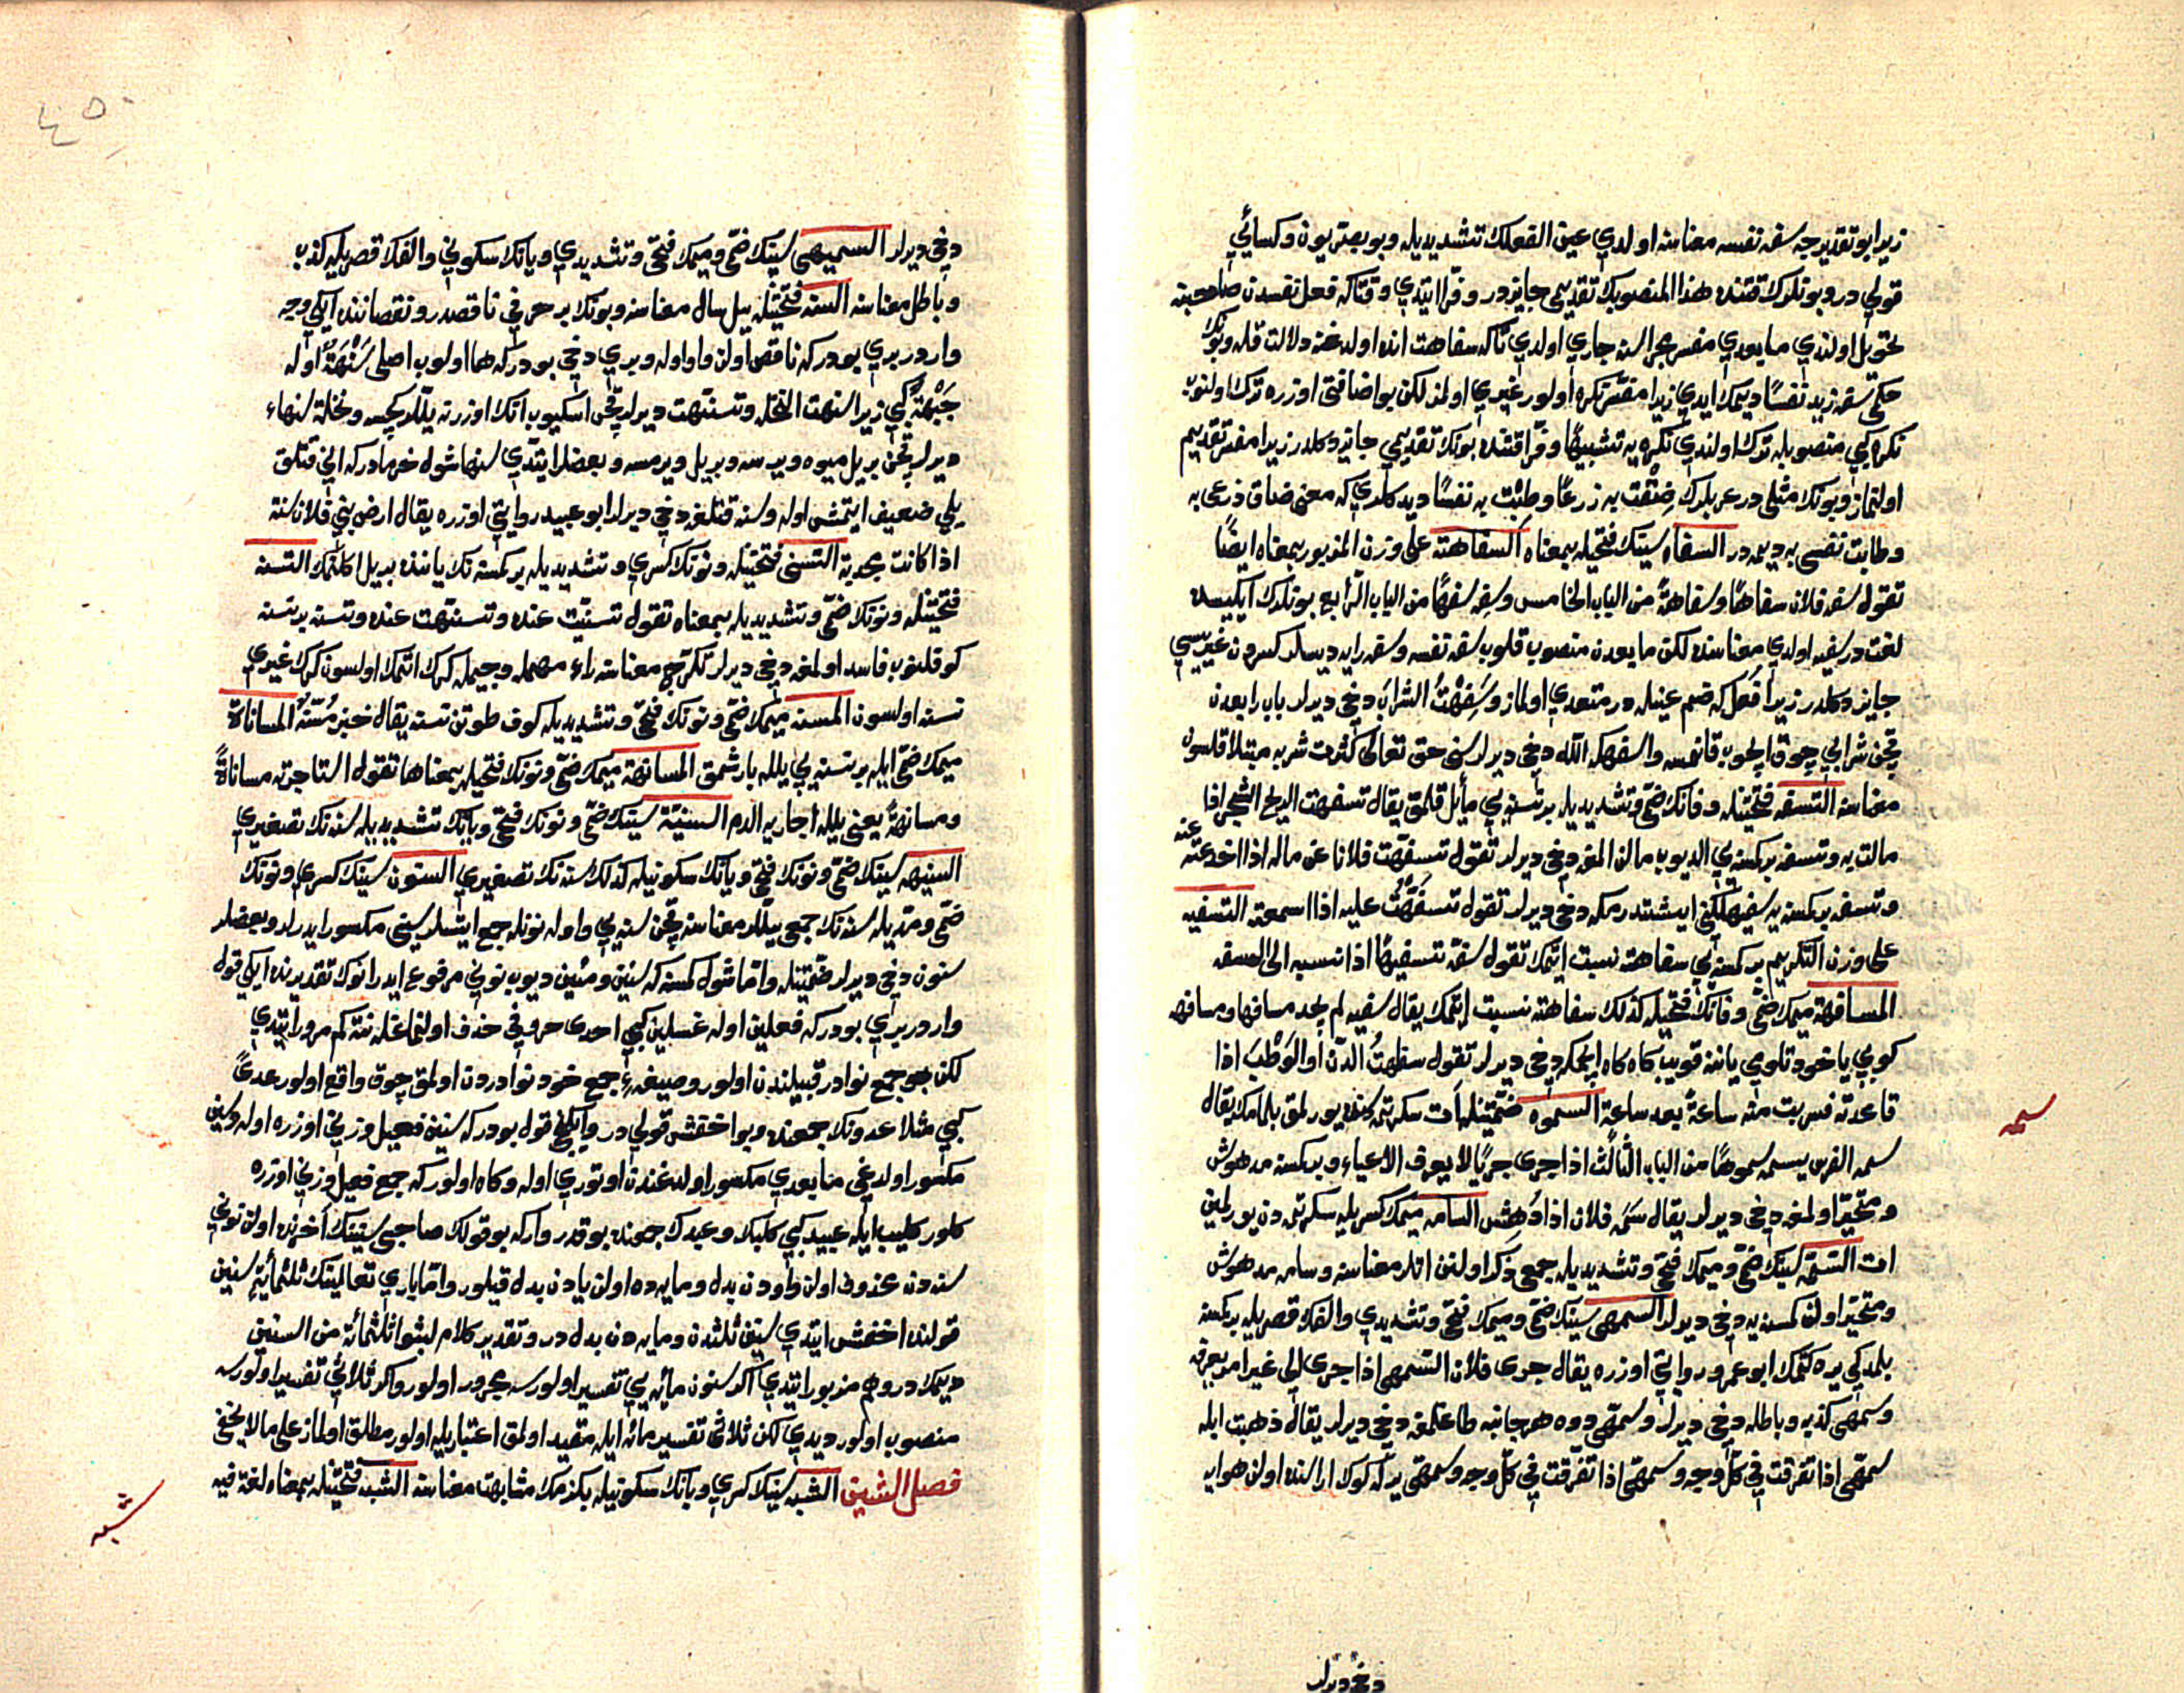 زيرا بو تقديرجه سفه نفسه معناسنه اولدي عين الفعلك تشديديله وبو بصريون وكسائي
قولي در وبونلرك قتنده هذا المنصوبك تقديمي جايزدر وفرا ايتدي وقتاكه فعل نفسدن صاحبنه
تحويل اولندي مابعدي مفسر مجراسنه جاري اولدي تاكه سفاهت انده اولدغنه دلالت قله وبونك
حكمي سفه زيد نفسًا ديمك ايدي زيرا مفسر نكره اولور غيري اولمز لكن بو اضافتي اوزره ترك اولنوب
نكره كبي منصوبله ترك اولندي نكره يه تشبيهًا وفرا قتنده بونك تقديمي جايز دكلدر زيرا مفسر تقديم
اولنماز وبونك مثلي در عربلرك ضِقْت به ذرعًا وطِبْت به نفسًا ديدكلري كه معنى ضاق ذرعي به
وطابت نفسي به ديمه در السفاه سينك فتحيله بمعناه السفاهة على وزن المذبور بمعناه ايضًا
تقول سفه فلان سفاهًا وسفاهةً من الباب الخامس وسفه سفهًا من الباب الرابع بونلرك ايكيسده
لغت در سفيه اولدي معناسنه لكن مابعدن منصوب قلوب سفه نفسه وسفه رايه ديسلر كسردن غيريسي
جايز دكلدر زيرا فَعُل كه ضم عينله در متعدي اولماز وسَفِهْتُ الشرابَ دخي ديرلر باب رابعدن
قچن شرابي چوق ايچوب قانمسه واسفهكه الله دخي ديرلر سني حق تعالى كثرت شربه مبتلا قلسون
معناسنه التسفه فتحتيله وفانك ضمي وتشديديله برنسنه يي مايل قلمق يقال تسفهت الريح الشجر اذا
مالت به وتسفه بركسنه يي الديوب مالن المغه دخي ديرلر تقول تسفهت فلانا عن ماله اذا اخدعته عنه
وتسفه بركسنه يه سفيهلكني ايشتدرمكه دخي ديرلر تقول تسفّهْتُ عليه اذا اسمعته التسفيه
على وزن التكريم بركسنه يي سفاهته نسبت ايتمك تقول سفه تسفيهًا اذا نسبه الى السفه
المسافهة ميمك ضمي وفانك فتحيله كذلك سفاهته نسبت ايتمك يقال سفيه لم يجد مسافها ومسافهه
كوپي ياخود تلومي ياننه قويب كاه كاه ايچمكه دخي ديرلر تقول سفهتُ الدّن او الوَطْبَ اذا
قاعدته فشربت منه ساعةً بعد ساعة السموه ضمتيله آت سكرتمكده يورلمق بلمامك يقال
سمه الفرس يسمه سموهًا من الباب الثالث اذا جرى جريًا لا يعرف الاعياء وبركسنه مدهوش
ومتحير اولمغه دخي ديرلر يقال سَمَه فلان اذا دُهِش السامه ميمك كسريله سكرتمه دن يورلمين
ات السمه سينك ضمي وميمك فتحي وتشديديله جمعي ذكر اولنن اتلر معناسنه وسامه مدهوش
ومتحير اولن كمسنه يه دخي ديرلر السمهى سينك ضمي وميمك فتحي وتشديدي والفك قصريله بركسنه
بلمدكي يره كتمك ابو عمرو روايتي اوزره يقال جرى فلان السمهى اذا جرى الى غير امر يعرفه
وسمهى كذبه وباطله دخي ديرلر وسمهى دوه هر جانبه طاغلمغه دخي ديرلر يقال ذهبت ابله
سمهى اذا تفرقت في كل وجه وسمهى اذا تفرقت في كل وجه وسمهى يرله كوك اراسنده اولن هوايه
دخي ديرلر
سمه
٤٥
دخي ديرلر السميهى سينك ضمي وميمك فتحي وتشديدي ويانك سكوني والفك قصريله كذب
وباطل معناسنه السنه فتحتيله ييل سال معناسنه وبونك بر حرفي ناقصدر ونقصاننده ايكي وجه
واردر بري بودركه ناقص اولن واو اوله وبري دخي بودركه هما اولوب اصلي سَنْهَةٌ اوله
جَبْهَةٌ كبي زيرا سنهت النخل وتسنهت ديرلر قچن اسكيوب انك اوزرنه ييللر كچسه ونخلة سنهاء
ديرلر قچن بر ييل ميوه ويرسه وبر ييل ويرمسه وبعضلر ايتدي سنها شول خرمادركه اني قتلق
ييلي ضعيف ايتمش اوله وسنه قتلغه دخي ديرلر ابو عبيد روايتي اوزره يقال ارض بني فلان سنة
اذا كانت مجدبة التسنى فتحتيله ونونك كسري وتشديديله بركسنه نك ياننده بر ييل اكلنمك التسنه
فتحتيله ونونك ضمي وتشديديله بمعناه تقول تسنيت عنده وتسنهت عنده وتسنه برنسنه
كوقلنوب فاسد اولمغه دخي ديرلر تكرج معناسنه راء مهمله وجيمله كرك اتمك اولسون كرك غيري
نسنه اولسون المسنه ميمك ضمي ونونك فتحي وتشديديله كوف طوتن نسنه يقال خبز مُسَنَّهٌ المساناة
ميمك ضمي ايله برنسنه يي ييلله بارشمق المسانهة ميمك ضمي ونونك فتحيله بمعناها تقول استاجرته مساناةً
ومسانهةً يعني ييلله اجاريه الدم السنية سينك ضمي ونونك فتحي ويانك تشديديله سنه نك تصغيري
السنيهه سينك ضمي ونونك فتحي ويانك سكونيله كذلك سنه نك تصغيري السنون سينك كسري ونونك
ضمي ومديله سنه نك جمعي ييللر معناسنه قچن سنه يي واوله نونله جمع ايتسلر سيني مكسور ايدرلر وبعضلر
سنون دخي ديرلر ضمتيله واما شول كمسنه كه سنين ومئين ديوب نوني مرفوع ايدر انوك تقديرنده ايكي قول
واردر بري بودركه فعلين اوله غسلين كبي احدى حروفي حذف اولنماغله نته كم مرور ايتدي
لكن بو جمع نوادر قبيلندن اولور وصيغه‌ء جمع خود نوادردن اولمق چوق واقع اولور عدىً
كبي مثلا عدونك جمعنده وبو اخفش قولي در وايكنجي قول بودركه سنين فعيل وزني اوزره اوله وسين
مكسور اولدغي مابعدي مكسور اولدغندن اوتوري اوله وكاه اولور كه جمع فعيل وزني اوزره
كلور كليب ايله عبيد كبي كلبك وعبدك جمعنده بو قدر وارکه بو قولك صاحبي سنينك آخرنده اولن نوني
سنه دن محذوف اولن واودن بدل ومايه ده اولن يادن بدل قيلور واما باري تعالينك ثلثمائةٍ سنين
قولنده اخفش ايتدي سنين ثلثدن ومايه دن بدل در وتقدير كلام لبثوا ثلثمائة من السنين
ديمك در وهم مزبور ايتدي اكر سنون مائه يي تفسير اولورسه مجرور اولور واكر ثلاثي تفسير اولورسه
منصوب اولور ديدي لكن ثلاثي تفسير مائه ايله مقيد اولمق اعتباريله اولور مطلق اولماز على ما لا يخفى
فصل الشين الشبه شينك كسري وبانك سكونيله بكزمك مشابهت معناسنه الشبه فتحتيله بمعناه لغة فيه
شبه